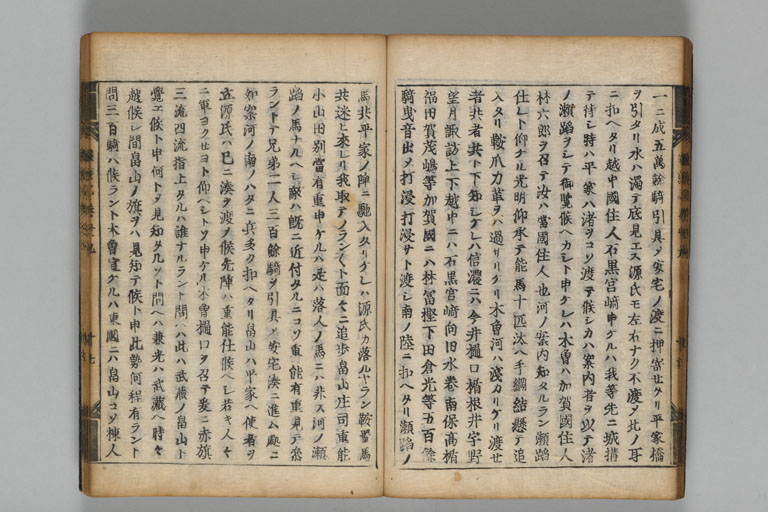 一ニ成五萬餘騎引具メ安宅ノ渡ニ押寄せタリ平家橋
ヲ引タリ水ハ濁テ底見エス源氏モ左右ナク不渡メ北ノ耳
ニ扣ヘタリ越中國住人石黒宮﨑申ケルハ我等先ニ城構
テ待シ時ハ平家ハ渚ヲコソ渡テ候シカハ案内者ヲ以テ渚
ノ瀬踏ヲシテ御覧候ヘカシト申ケレハ木曽ハ加賀國住人
林六郎ヲ召テ汝ハ當國住人也河ノ案内知タルラン瀬踏
仕レト仰ケル光明仰承テ能馬十匹汰ヘ手綱結懸テ追
入タリ鞍爪力革ヲハ過サリケリ木曽河ハ浅カリケリ渡せ
者共者共ト下知シケレハ信濃ニハ今井樋口楯根井宇野
望月諏訪上下越中ニハ石黒宮﨑向田水巻南保髙楯
福田賀茂嶋等加賀國ニハ林冨樫下田倉光等五百餘
騎曳音出メ打浸打浸サト渡シ南ノ陸ニ扣ヘタリ瀬踏ノ
馬共平家ノ陣ニ馳入タリケレハ源氏カ落ルヤラン鞍置馬
共迷ヒ来レリ我取テノランくト面々ニ追歩畠山庄司重能
小山田別當有重申ケルハ是ハ落人ノ馬ニハ非ス河ノ瀬
踏ノ馬ナルヘシ敵ハ既ニ近付タルニコソ重能有重見テ参
ラントテ兄弟二人三百餘騎ヲ引具メ安宅湊ニ進ム處ニ
如案河ノ南ノハタニ兵多ク扣ヘタリ畠山ハ平家ヘ使者ヲ
立源氏ハ巳ニ湊ヲ渡ノ候先陣ハ重能仕候ヘシ若キ人々
ニ軍ヨクせヨト仰ヘシトソ申ケル木曽樋口ヲ召テ爰ニ赤旗
三流四流指上タルハ誰ナルラント問ヘハ此ハ武蔵ノ畠山ト
覺エ候ト申何トメ見知タルソト問ヘハ兼光ハ武蔵ヘ時々
越候シ間畠山ノ旗ヲハ見知テ候ト申此勢何程有ラント
問三百騎ハ候ラント木曽宣ケルハ東國ニハ畠山コソ棟人